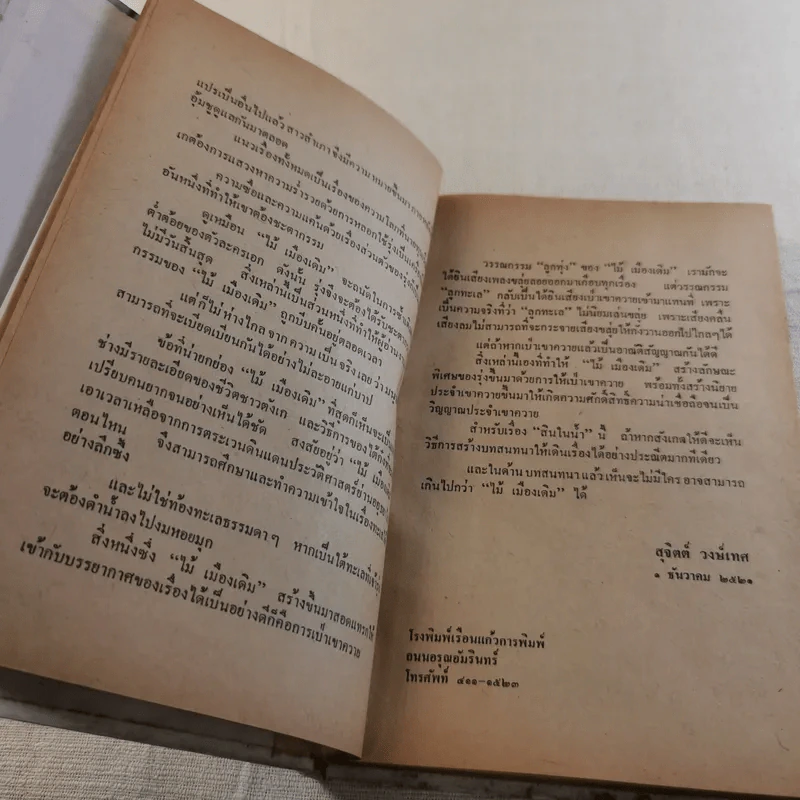 แปรเป็นอื่นไปแล้ว สาวสำเภาจึงมีความหมายขึ้นมา
อุ้มชูดูแลกันมาตลอด
แนวเรื่องทั้งหมดเป็นเรื่องของความโลภที่นาย
เกต้องการแสวงหาความร่ำรวยด้วยการหลอกใช้รุ่งเป็นเครื่อง
ความซื่อและความแค้นด้วยเรื่องส่วนตัวของรุ่ง
อันหนึ่งที่ทำให้เขาต้องชะตากรรม
ดูเหมือน “ไม้ เมืองเดิม” จะถนัดในการ
ต่ำต้อยของตัวละครเอก ดังนั้น รุ่งจึงจะต้องได้รับชะตา
ไม่มีวันสิ้นสุด สิ่งเหล่านี้เป็นส่วนหนึ่งที่ทำให้ผู้อ่าน
กรรมของ “ไม้ เมืองเดิม” ถูกบีบคั้นอยู่ตลอดเวลา
แต่ก็ไม่ห่างไกลจากความเป็นจริงเลย ว่า
สามารถที่จะเบียดเบียนกันได้อย่างไม่ละอายแก่บาป
ข้อที่น่ายกย่อง “ไม้ เมืองเดิม” ที่สุดก็เห็นจะเป็น
ช่างมีรายละเอียดของชีวิตชาวตังเก และวิธีการของไต้ก๋ง
เปรียบคนยากจนอย่างเห็นได้ชัด สงสัยอยู่ว่า “ไม้ เมืองเดิม
เอาเวลาเหลือจากการตระเวนดินแดนประวัติศาสตร์ย่านอยุธยา
ตอนไหน จึงสามารถศึกษาและทำความเข้าใจในเรื่องทะเล
อย่างลึกซึ้ง
และไม่ใช่ท้องทะเลธรรมดาๆ หากเป็นใต้ทะเลที่
จะต้องดำน้ำลงไปงมหอยมุก
สิ่งหนึ่งซึ่ง “ไม้ เมืองเดิม” สร้างขึ้นมาสอดแทรกให้
เข้ากับบรรยากาศของเรื่องได้เป็นอย่างดีก็คือการเป่าเขาควาย
วรรณกรรม “ลูกทุ่ง” ของ “ไม้ เมืองเดิม” เรามักจะ
ได้ยินเสียงเพลงขลุ่ยลอยออกมาเกือบทุกเรื่อง แต่วรรณกรรม
“ลูกทะเล” กลับเป็นได้ยินเสียงเป่าเขาควายเข้ามาแทนที่ เพราะ
เป็นความจริงที่ว่า “ลูกทะเล” ไม่นิยมเล่นขลุ่ย เพราะเสียงคลื่น
เสียงลมไม่สามารถที่จะกระจายเสียงขลุ่ยให้กังวานออกไปไกลๆได้
แต่ถ้าหากเป่าเขาควายแล้วเป็นอาณัติสัญญาณกันได้ดี
สิ่งเหล่านี้เองที่ทำให้ “ไม้ เมืองเดิม” สร้างลักษณะ
พิเศษของรุ่งขึ้นมาด้วยการให้เป่าเขาควาย พร้อมทั้งสร้างนิยาย
ประจำเขาควายขึ้นมาให้เกิดความศักดิ์สิทธิ์ความน่าเชื่อถือจนเป็น
วิญญาณประจำเขาควาย
สำหรับเรื่อง “สินในน้ำ” นี้ ถ้าหากสังเกตให้ดีจะเห็น
วิธีการสร้างบทสนทนาให้เดินเรื่องได้อย่างประณีตมากทีเดียว
และในด้านบทสนทนาแล้วเห็นจะไม่มีใครอาจสามารถ
เกินไปกว่า “ไม้ เมืองเดิม” ได้
สุจิตต์ วงษ์เทศ
๑ ธันวาคม ๒๕๒๑
โรงพิมพ์เรือนแก้วการพิมพ์
ถนนอรุณอัมรินทร์
โทรศัพท์ ๔๑๑-๑๕๒๓